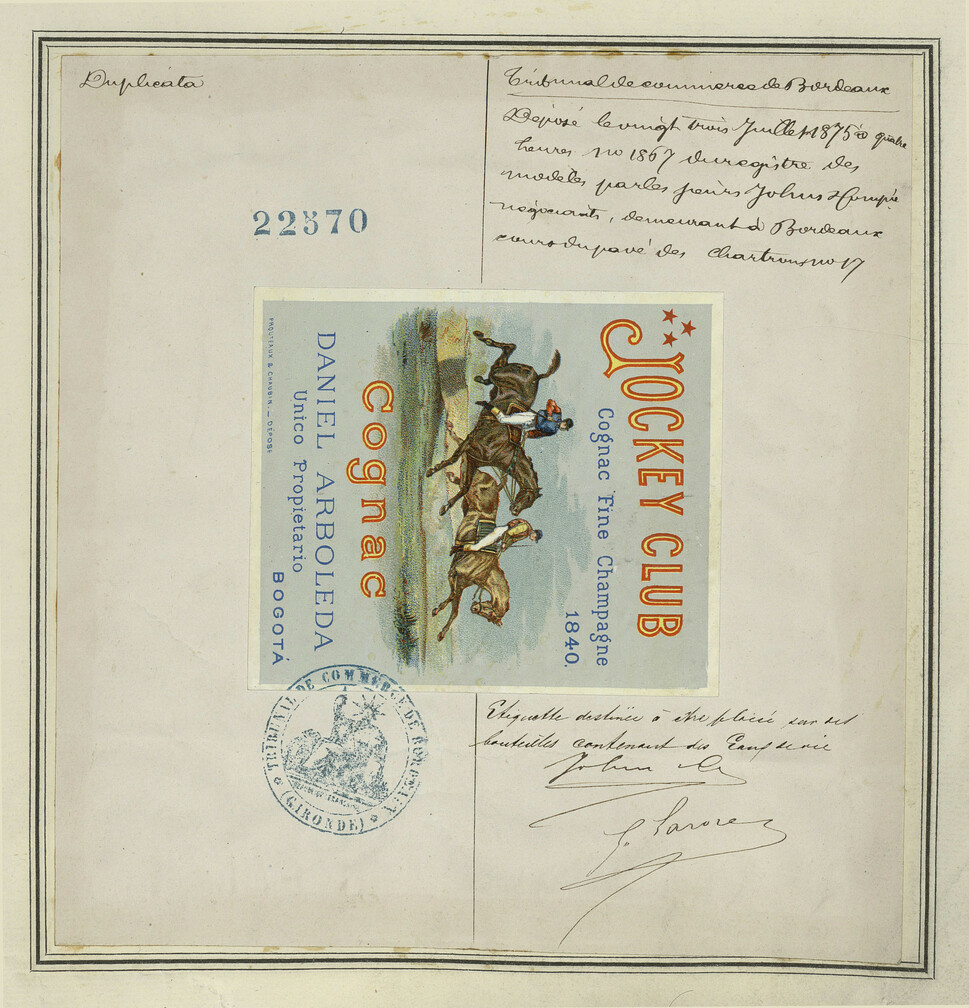 Duplicata
Tribunal de commerce de Bordeaux
Déposé le vingt trois Juillet 1875 à quatre
heures no 1867 du registre des
modèles par les sieurs Johns & Compie
négociants, demeurant à Bordeaux
cours du pavé des Chartrons no 17
22570
JOCKEY CLUB
Cognac Fine Champagne
1840.
Cognac
DANIEL ARBOLEDA
Unico Propietario
BOGOTÁ
PROUTEAUX & CHAUBIN. — DÉPOSÉ
TRIBUNAL DE COMMERCE DE BORDEAUX
(GIRONDE)
Etiquette destinée à être placée sur des
bouteilles contenant des Eaux de vie